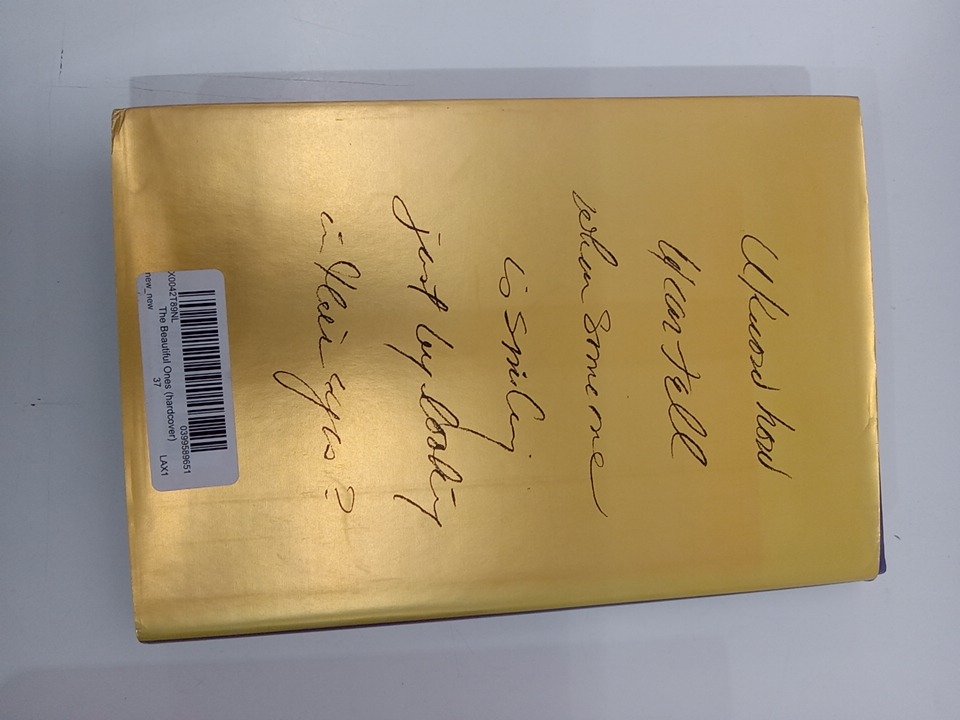 U know how
U can tell
when Someone
is smiling
just by looking
in their eyes?
0399589651
X0042T89NL
The Beautiful Ones (hardcover)
37 LAX1
new_new